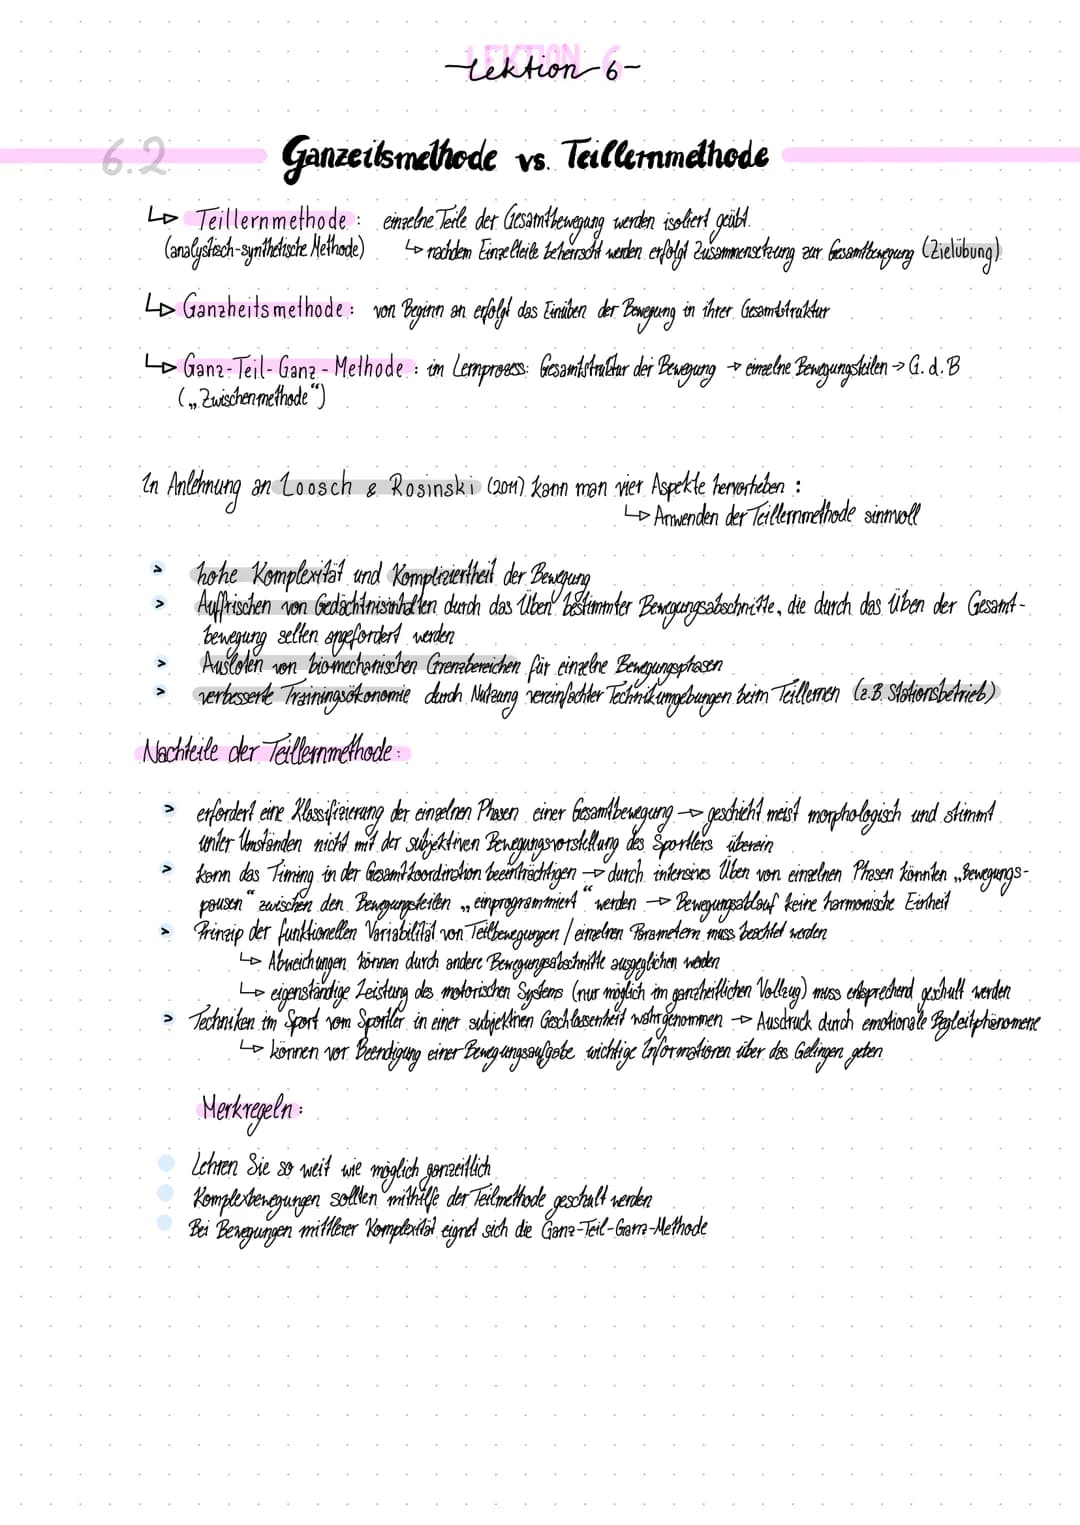 LEKTION 6
-Lektion 6-
6.2 Ganzeitsmethode vs. Teillernmethode
↳ Teillernmethode: einzelne Teile der Gesamtbewegung werden isoliert geübt.
(analystisch-synthetische Methode) ↳ nachdem Einzelteile beherrscht werden erfolgt Zusammensetzung zur Gesamtbewegung (Zielübung)
↳ Ganzheitsmethode: von Beginn an erfolgt das Einüben der Bewegung in ihrer Gesamtstruktur
↳ Ganz-Teil-Ganz-Methode: im Lernprozess: Gesamtstruktur der Bewegung → einzelne Bewegungsteilen → G.d.B
(„Zwischenmethode“)
In Anlehnung an Loosch & Rosinski (2011) kann man vier Aspekte hervorheben:
↳ Anwenden der Teillernmethode sinnvoll
> hohe Komplexität und Kompliziertheit der Bewegung
> Auffrischen von Gedächtnisinhalten durch das Üben bestimmter Bewegungsabschnitte, die durch das Üben der Gesamt-
bewegung selten angefordert werden
> Ausloten von biomechanischen Grenzbereichen für einzelne Bewegungsphasen
> verbesserte Trainingsökonomie durch Nutzung vereinfachter Technikumgebungen beim Teillernen (z.B. Stationsbetrieb)
Nachteile der Teillernmethode:
> erfordert eine Klassifizierung der einzelnen Phasen einer Gesamtbewegung → geschieht meist morphologisch und stimmt
unter Umständen nicht mit der subjektiven Bewegungsvorstellung des Sportlers überein
> kann das Timing in der Gesamtkoordination beeinträchtigen → durch intensives Üben von einzelnen Phasen könnten „Bewegungs-
pausen“ zwischen den Bewegungsteilen „einprogrammiert“ werden → Bewegungsablauf keine harmonische Einheit
> Prinzip der funktionellen Variabilität von Teilbewegungen / einzelnen Parametern muss beachtet werden
↳ Abweichungen können durch andere Bewegungsabschnitte ausgeglichen werden
↳ eigenständige Leistung des motorischen Systems (nur möglich im ganzheitlichen Vollzug) muss entsprechend geschult werden
> Techniken im Sport vom Sportler in einer subjektiven Geschlossenheit wahrgenommen → Ausdruck durch emotionale Begleitphänomene
↳ können vor Beendigung einer Bewegungsaufgabe wichtige Informationen über das Gelingen geben
Merkregeln:
Lehren Sie so weit wie möglich ganzeitlich
Komplexbewegungen sollten mithilfe der Teilmethode geschult werden
Bei Bewegungen mittlerer Komplexität eignet sich die Ganz-Teil-Ganz-Methode